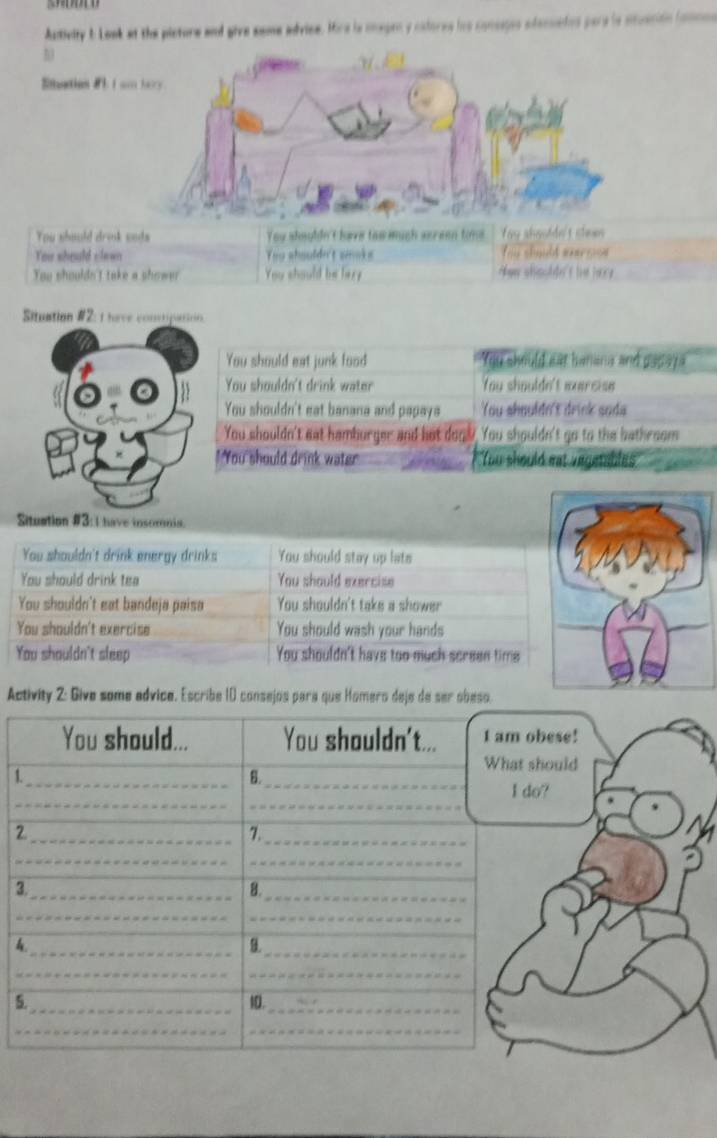 SHOULD
Activity 1: Look at the picture and give some advice. Mira la imagen y colorea los consejos adecuados para la situación
5)
Situation #1: I am lazy.
You should drink soda
You shouldn't have too much screen time
You shouldn't clean
You should clean
You shouldn't smoke
You should exercise
You shouldn't take a shower
You should be lazy
You shouldn't be lazy
Situation #2: I have constipation.
You should eat junk food
You should eat banana and papaya
You shouldn't drink water
You shouldn't exercise
You shouldn't eat banana and papaya
You shouldn't drink soda
You shouldn't eat hamburger and hot dog
You shouldn't go to the bathroom
You should drink water
You should eat vegetables
Situation #3: I have insomnia.
You shouldn't drink energy drinks
You should stay up late
You should drink tea
You should exercise
You shouldn't eat bandeja paisa
You shouldn't take a shower
You shouldn't exercise
You should wash your hands
You shouldn't sleep
You shouldn't have too much screen time
Activity 2: Give some advice. Escribe 10 consejos para que Homero deje de ser obeso.
You should...
You shouldn't...
I am obese!
What should
I do?
1.
6.
2.
7.
3.
8.
4.
9.
5.
10.